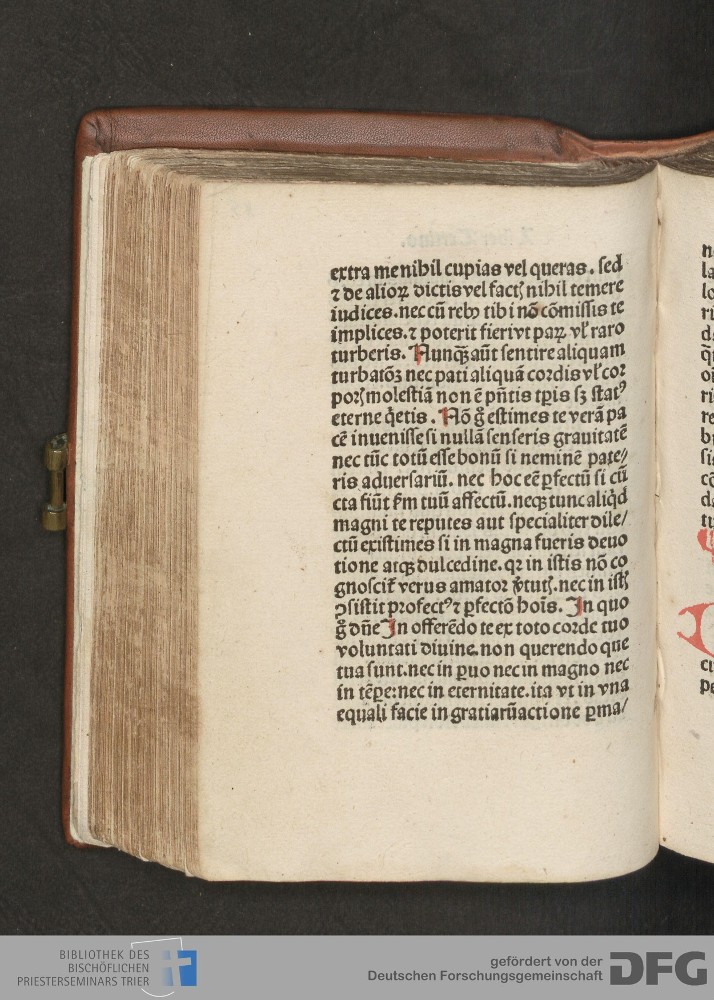 extra me nihil cupias vel queras. sed
⁊ de alioꝝ dictis vel factꝭ nihil temere
iudices. nec cū rebꝰ tibi nō cōmissis te
implices. ⁊ poterit fieri vt paꝝ vl̕ raro
turberis. Nunqꝫ aūt sentire aliquam
turbatōꝫ nec pati aliquā cordis vl̕ cor
porꝭ molestiā non ē pn̄tis tp̄is sꝫ statꝰ
eterne q̇etis. Nō g̊ estimes te verā pa
cē inuenisse si nullā senseris grauitatē
nec tūc totū esse bonū si neminē pate/
ris aduersariū. nec hoc eē ꝑfectū si cū
cta fiūt ẜm tuū affectū. neqꝫ tunc aliq̇d
magni te reputes aut specialiter dile/
ctū existimes si in magna fueris deuo
tione atqꝫ dulcedine. qꝛ in istis nō co
gnoscit̕ verus amator v̕tutꝭ. nec in istꝭ
ꝯsistit profectꝰ ⁊ ꝑfectō hoīs. In quo
g̊ dn̄e In offerēdo te ex toto corde tuo
voluntati diuine. non querendo que
tua sunt. nec in ꝑuo nec in magno nec
in tēꝑe: nec in eternitate. ita vt in vna
equali facie in gratiarū actione ꝑma/
BIBLIOTHEK DES
BISCHÖFLICHEN
PRIESTERSEMINARS TRIER
gefördert von der
Deutschen Forschungsgemeinschaft
DFG